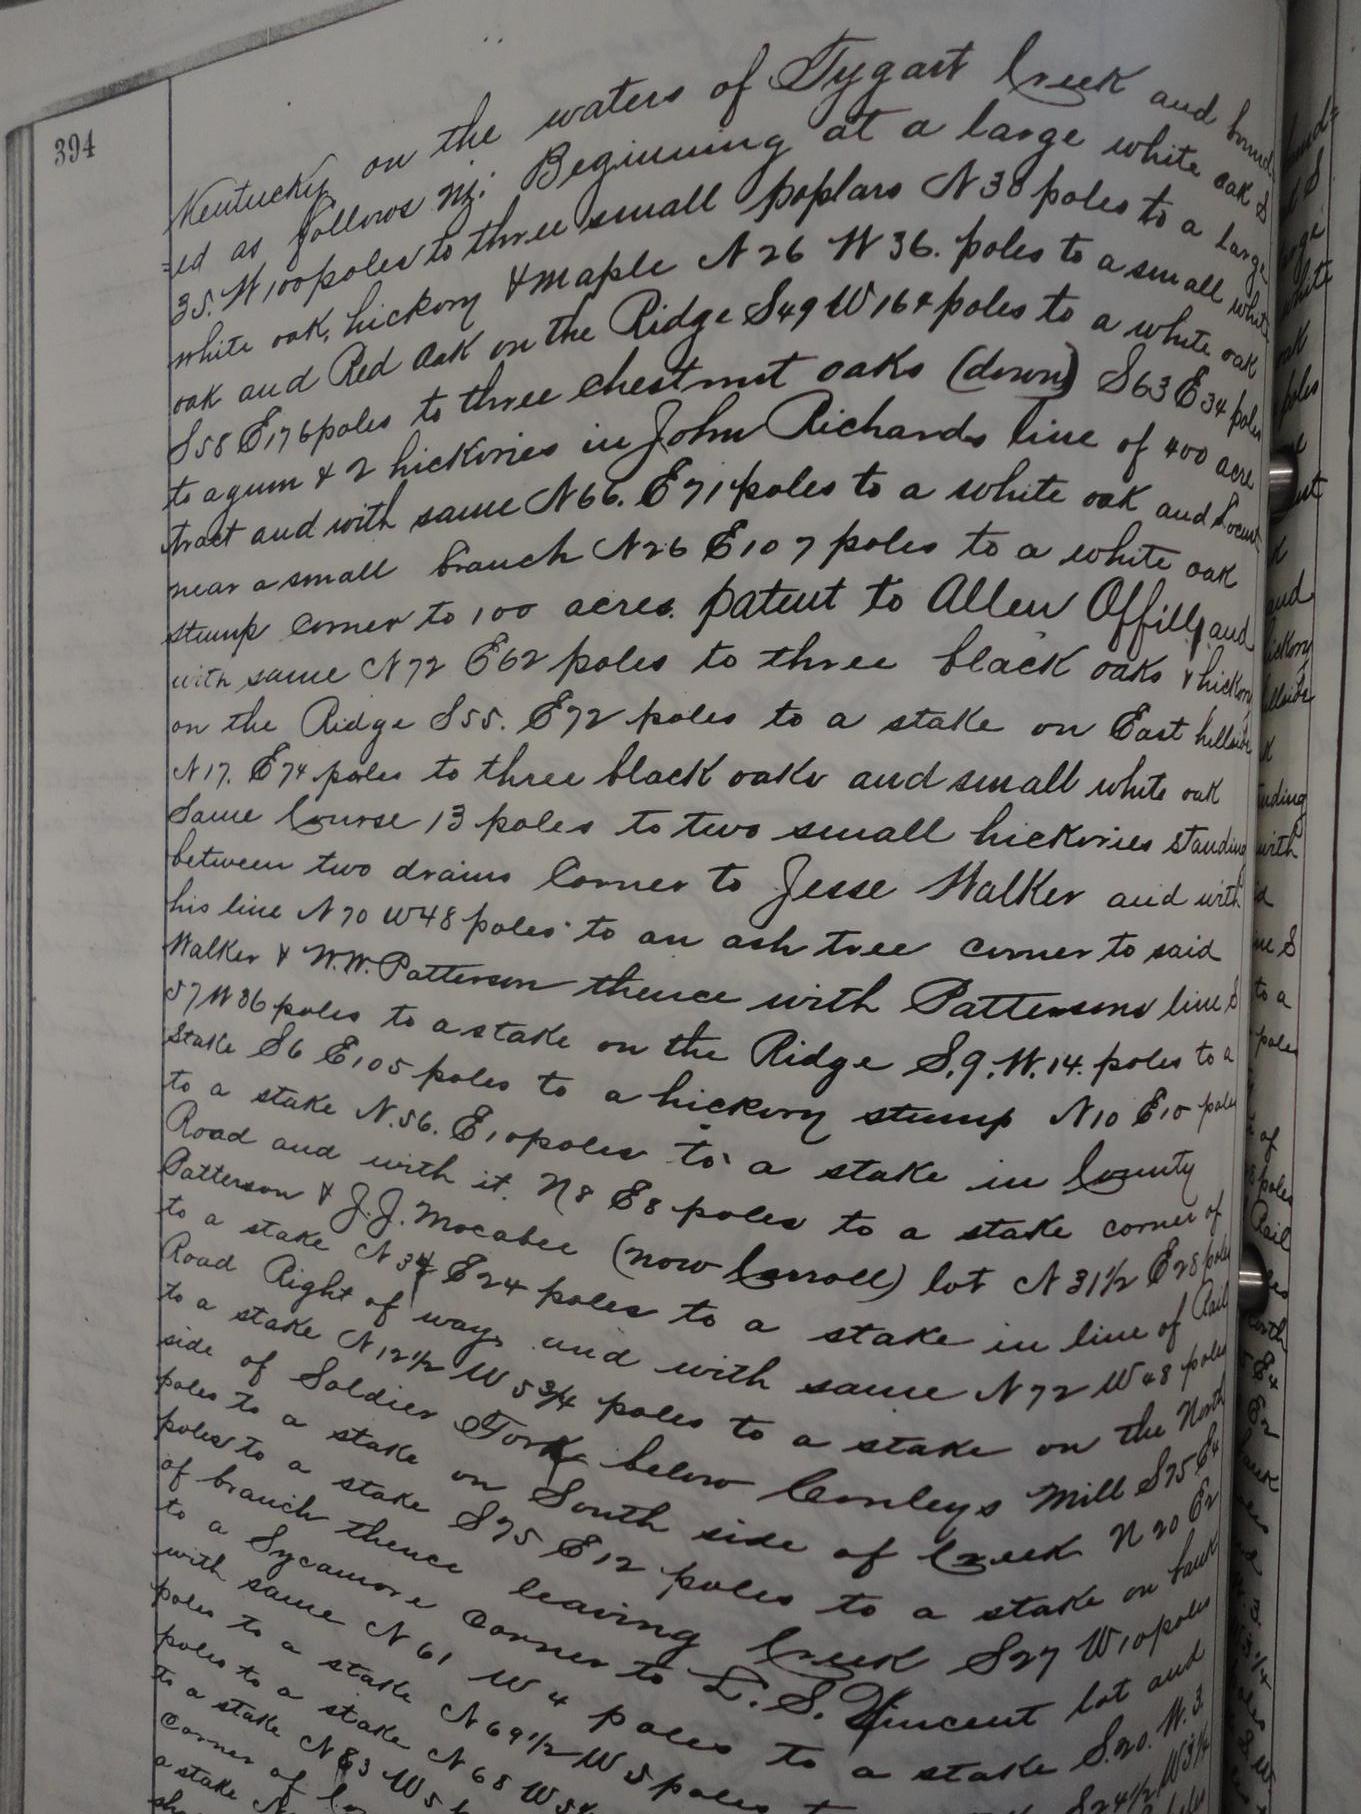 394
Kentucky on the waters of Tygart Creek and bound
=ed as follows viz: Beginning at a large white oak S
35. W 100 poles to three small poplars N 38 poles to a large
white oak, hickory & maple N 26 W 36. poles to a small white
oak and Red Oak on the Ridge S49 W 164 poles to a white oak
S58 E176 poles to three chestnut oaks (down) S63 E34 poles
to a gum & 2 hickories in John Richards line of 400 acre
tract and with same N66. E71 poles to a white oak and Locust
near a small branch N26 E107 poles to a white oak
stump corner to 100 acres. patent to Allen Offill, and
with same N72 E62 poles to three black oaks & hickory
on the Ridge S55. E72 poles to a stake on East hillside
N17. E74 poles to three black oaks and small white oak
Same Course 13 poles to two small hickories standing
between two drains Corner to Jesse Walker and with
his line N70 W48 poles to an ash tree corner to said
Walker & W.W. Patterson thence with Pattersons line S
57 W36 poles to a stake on the Ridge S.9. W.14. poles to a
Stake S6 E105 poles to a hickory stump N10 E10 poles
to a stake N.56. E10 poles to a stake in County
Road and with it. N8 E8 poles to a stake corner of
Patterson & J.J. Mocabee (now Carroll) lot N31 1/2 E28 poles
to a stake N34 E24 poles to a stake in line of Rail
Road Right of way, and with same N72 W48 poles
to a stake N12 1/2 W 5 3/4 poles to a stake on the North
side of Soldier Fork below Conleys Mill S75 E4
poles to a stake on South side of Creek N20 E2
poles to a stake S75 E12 poles to a stake on bank
of branch thence leaving Creek S27 W10 poles
to a Sycamore Corner to L.S. Vincent lot and
with same N61 W4 poles to a stake S.20. W.3
poles to a stake N69 1/2 W5 poles S24 1/2 W3 1/4
poles to a stake N68 W5
to a stake N83 W5
Corner of
a stake